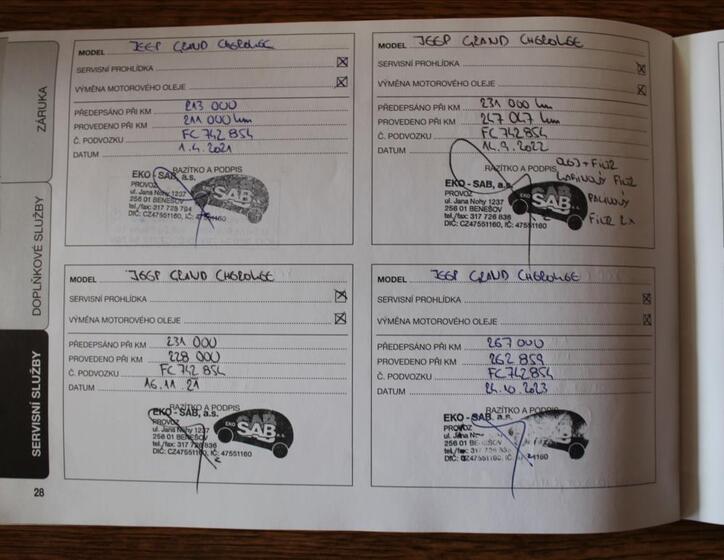 ZÁRUKA
DOPLŇKOVÉ SLUŽBY
SERVISNÍ SLUŽBY
28
MODEL JEEP GRAND CHEROKEE
SERVISNÍ PROHLÍDKA
VÝMĚNA MOTOROVÉHO OLEJE
PŘEDEPSÁNO PŘI KM 213 000
PROVEDENO PŘI KM 211 000 km
Č. PODVOZKU FC 742 854
DATUM 1.4.2021
RAZÍTKO A PODPIS
EKO - SAB, a.s.
PROVOZ
ul. Jana Nohy 1237
256 01 BENEŠOV
tel./fax: 317 728
DIČ: CZ47551160, IČ: 47551160
SAB
MODEL JEEP GRAND CHEROKEE
SERVISNÍ PROHLÍDKA
VÝMĚNA MOTOROVÉHO OLEJE
PŘEDEPSÁNO PŘI KM 231 000 km
PROVEDENO PŘI KM 247 047 km
Č. PODVOZKU FC 742854
DATUM 14.9.2022
RAZÍTKO A PODPIS
OLEJ + FILTR
KABINOVÝ FILTR
PALIVOVÝ
FILTR 2x
EKO - SAB, a.s.
PROVOZ
ul. Jana Nohy 1237
256 01 BENEŠOV
tel./fax: 317 726 836
DIČ: CZ47551160, IČ: 47551160
SAB
MODEL JEEP GRAND CHEROKEE
SERVISNÍ PROHLÍDKA
VÝMĚNA MOTOROVÉHO OLEJE
PŘEDEPSÁNO PŘI KM 231 000
PROVEDENO PŘI KM 228 000
Č. PODVOZKU FC 742 854
DATUM 16.11.21
RAZÍTKO A PODPIS
EKO - SAB, a.s.
PROVOZ
ul. Jana Nohy 1237
256 01 BENEŠOV
tel./fax: 317 726 836
DIČ: CZ47551160, IČ: 47551160
EKO SAB a.s.
MODEL JEEP GRAND CHEROKEE
SERVISNÍ PROHLÍDKA
VÝMĚNA MOTOROVÉHO OLEJE
PŘEDEPSÁNO PŘI KM 267 000
PROVEDENO PŘI KM 262 859
Č. PODVOZKU FC742854
DATUM 24.10.2023
RAZÍTKO A PODPIS
EKO - SAB, a.s.
PROVOZ
ul. Jana
256 01 BENEŠOV
tel./fax: 317 726
DIČ: CZ47551160, IČ:
SAB